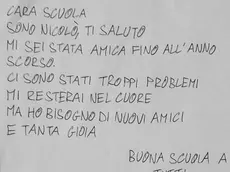 CARA SCUOLA
SONO NICOLÒ, TI SALUTO
MI SEI STATA AMICA FINO ALL'ANNO
SCORSO.
CI SONO STATI TROPPI PROBLEMI
MI RESTERAI NEL CUORE
MA HO BISOGNO DI NUOVI AMICI
E TANTA GIOIA
BUONA SCUOLA A